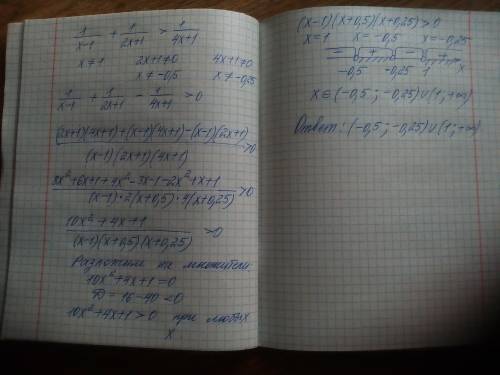 1/(x-1) + 1/(2x+1) > 1/(4x+1)
x ≠ 1 2x+1≠0 4x+1≠0
x ≠ -0,5 x ≠ -0,25
1/(x-1) + 1/(2x+1) - 1/(4x+1) > 0
((2x+1)(4x+1)+(x-1)(4x+1)-(x-1)(2x+1))/((x-1)(2x+1)(4x+1)) > 0
(8x²+6x+1+4x²-3x-1-2x²+x+1)/((x-1)·2(x+0,5)·4(x+0,25)) > 0
(10x²+4x+1)/((x-1)(x+0,5)(x+0,25)) > 0
Разложим на множители
10x²+4x+1=0
D = 16-40 <0
10x²+4x+1>0 при любых
x
(x-1)(x+0,5)(x+0,25)>0
x=1 x=-0,5 x=-0,25
- + - +
-0,5 -0,25 1 x
x∈(-0,5;-0,25)∪(1;+∞)
Ответ: (-0,5;-0,25)∪(1;+∞)